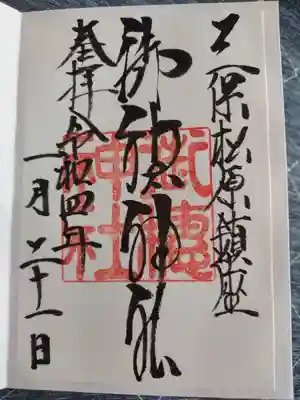 三保松原鎮座
御穂神社
奉拝 令和四年
一月二十一日
御穗
神社